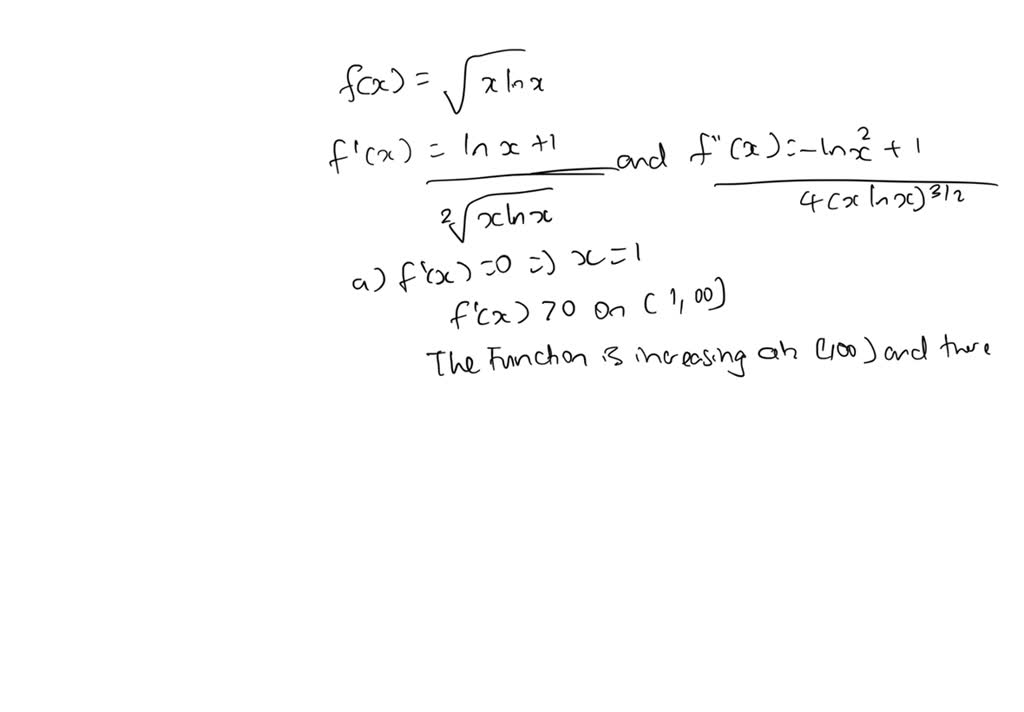 f(x) = √x ln x
f'(x) = ln x + 1 / 2√x ln x and f''(x) = - ln x² + 1 / 4(x ln x)^3/2
a) f'(x) = 0 => x = 1
f'(x) > 0 on (1, ∞]
The Function is increasing on (1,∞) and there